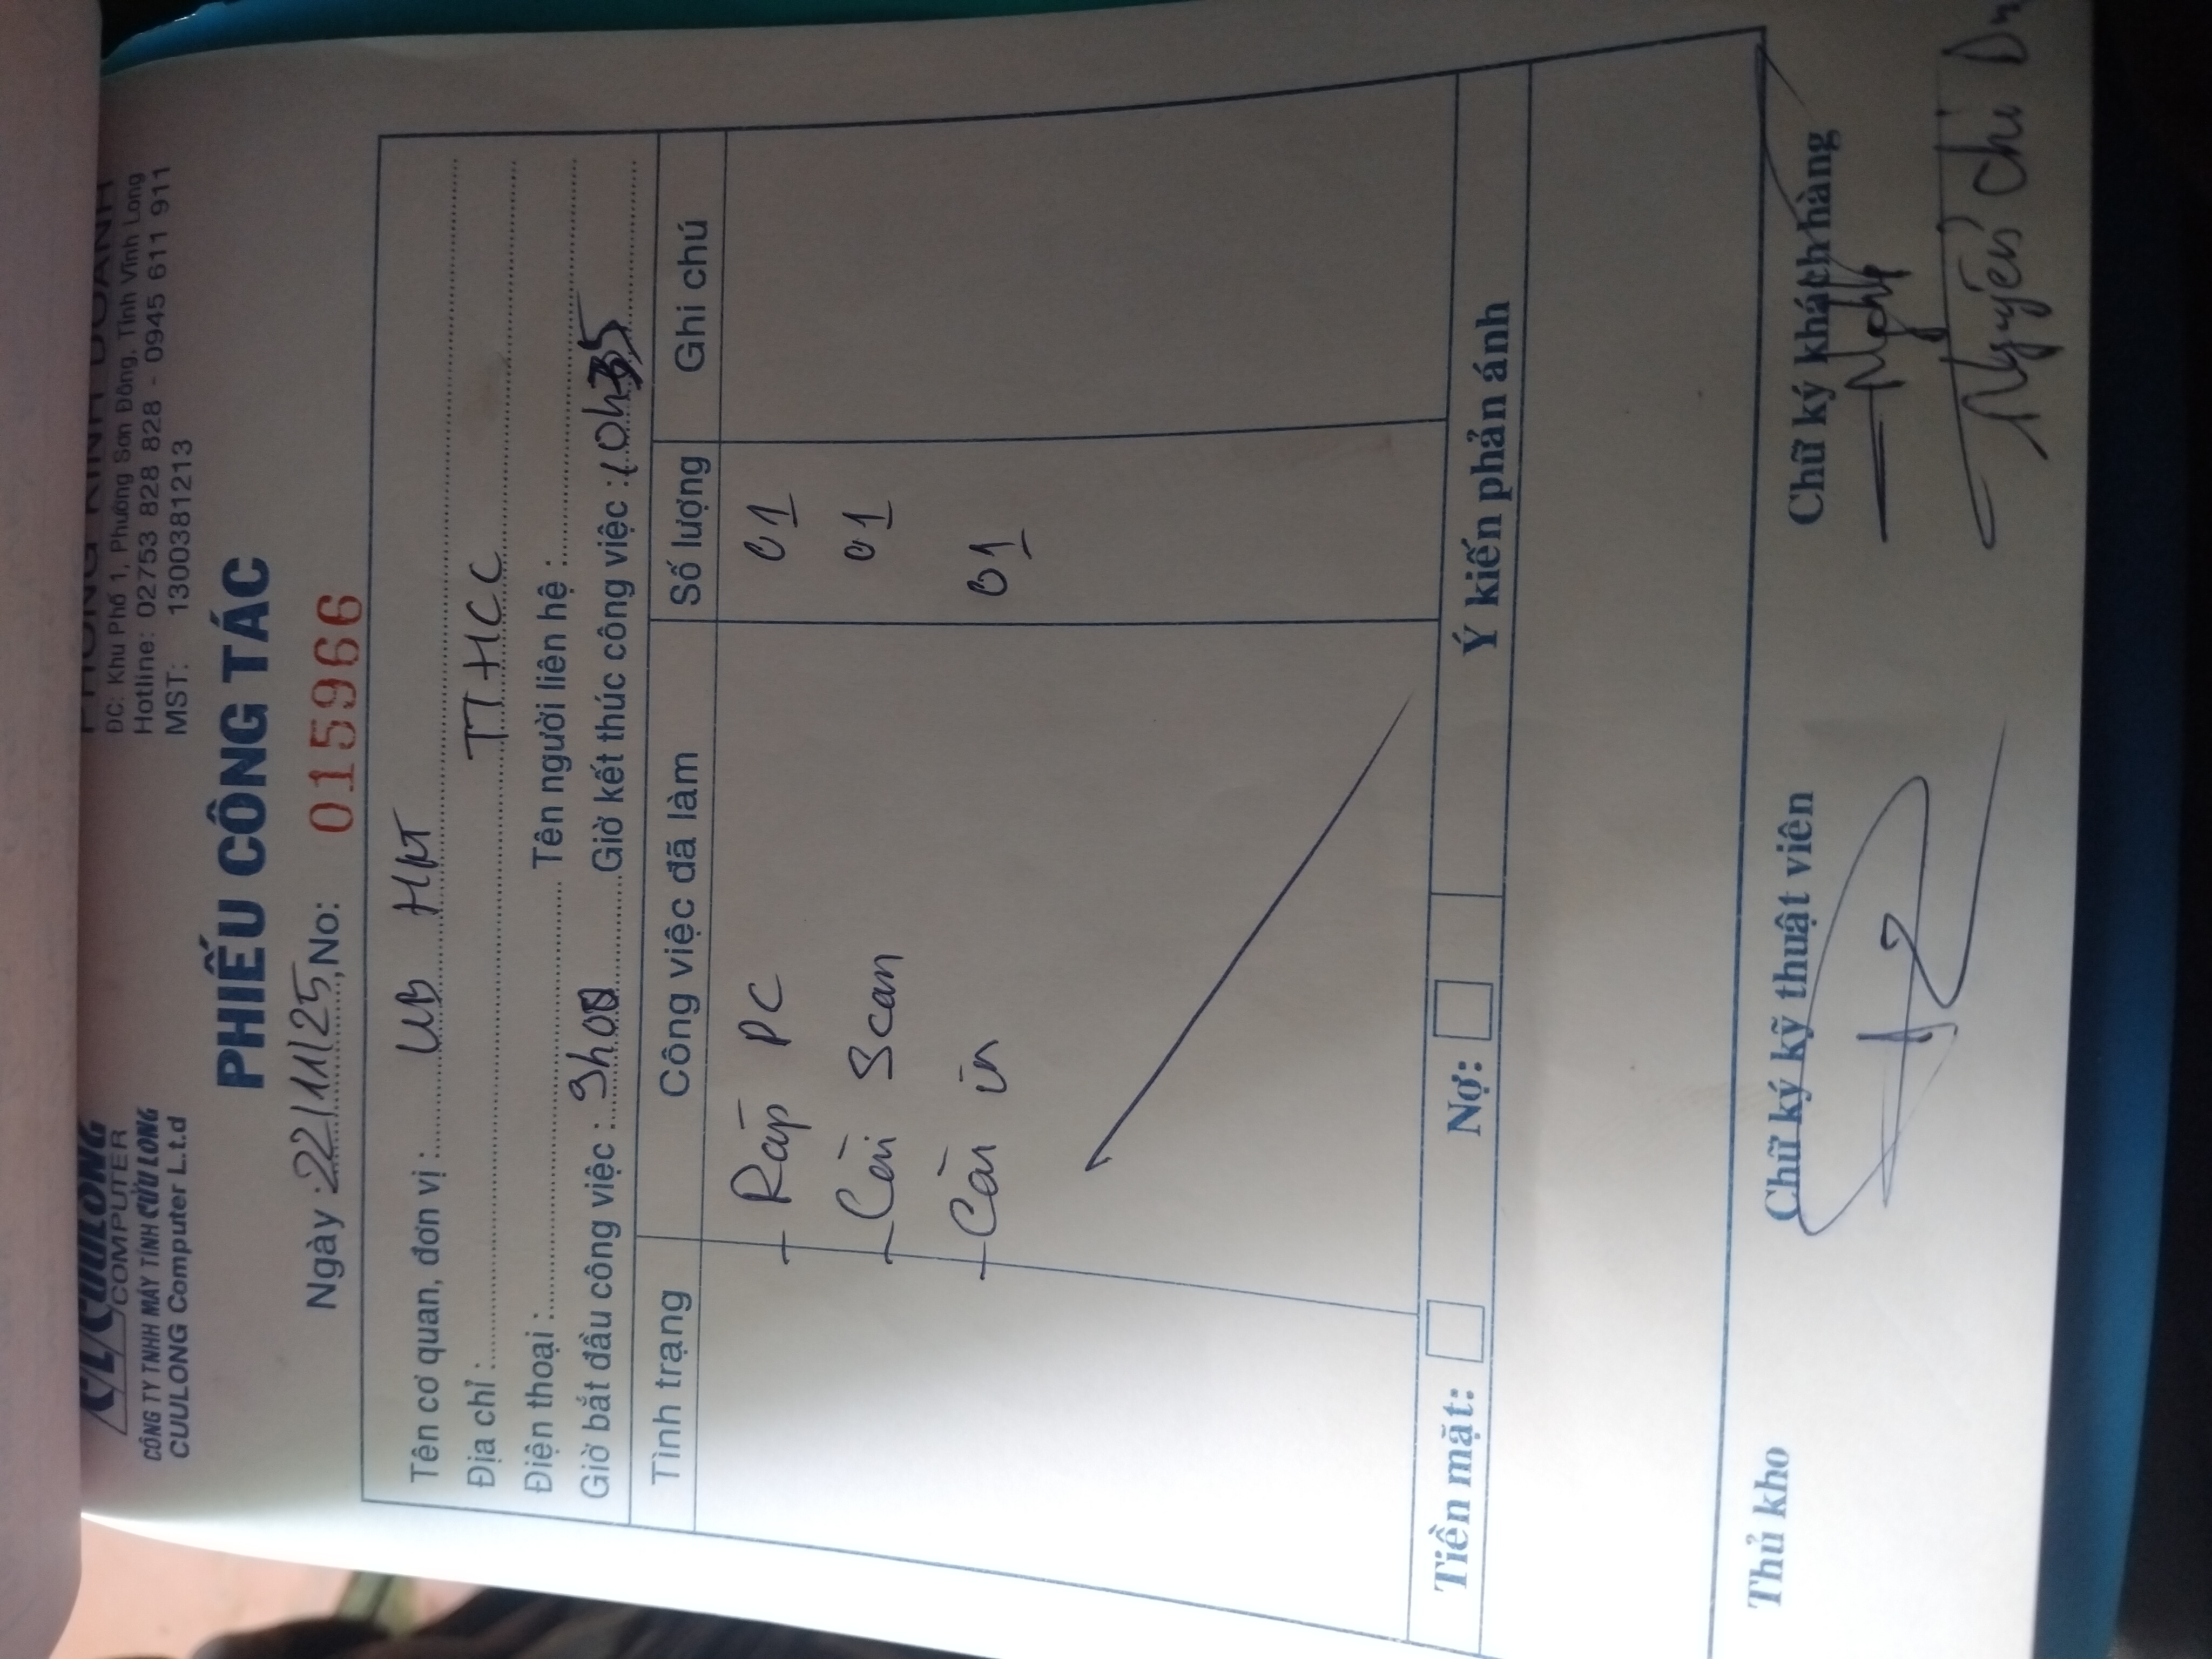 CUULONG
COMPUTER
CÔNG TY TNHH MÁY TÍNH CỬU LONG
CUULONG Computer L.t.d
PHÒNG KINH DOANH
ĐC: Khu Phố 1, Phường Sơn Đông, Tỉnh Vĩnh Long
Hotline: 02753 828 828 - 0945 611 911
MST: 1300381213
PHIẾU CÔNG TÁC
Ngày : 22/11/25, No: 015966
Tên cơ quan, đơn vị : UB
Địa chỉ : TTHCC
Điện thoại : Tên người liên hệ :
Giờ bắt đầu công việc : 9h00 Giờ kết thúc công việc : 10h35
Tình trạng Công việc đã làm Số lượng Ghi chú
- Ráp PC 01
- Cài Scan 01
- Cài in 01
Tiền mặt: Nợ: Ý kiến phản ánh
Thủ kho Chữ ký kỹ thuật viên Chữ ký khách hàng
Nguyễn Chí